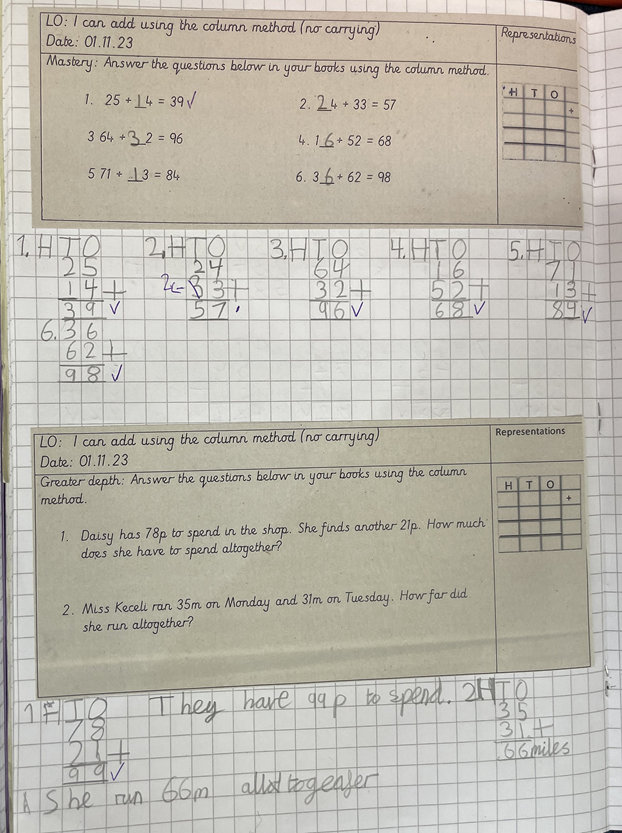 LO: I can add using the column method (no carrying)
Date: 01.11.23
Representations
Mastery: Answer the questions below in your books using the column method.
H T O
+
1. 25 + 14 = 39 ✓
2. 24 + 33 = 57
3 64 + 32 = 96
4. 16 + 52 = 68
5 71 + 13 = 84
6. 36 + 62 = 98
1. H T O
25
14 +
39 ✓
2. H T O
24
33 +
57
3. H T O
64
32 +
96 ✓
4. H T O
16
52 +
68 ✓
5. H T O
71
13 +
84 ✓
6. 36
62 +
98 ✓
LO: I can add using the column method (no carrying)
Date: 01.11.23
Representations
Greater depth: Answer the questions below in your books using the column
method.
H T O
+
1. Daisy has 78p to spend in the shop. She finds another 21p. How much
does she have to spend altogether?
2. Miss Keceli ran 35m on Monday and 31m on Tuesday. How far did
she run altogether?
1. H T O
78
21 +
99 ✓
They have 99p to spend.
2 H T O
35
31 +
66 miles
She run 66m